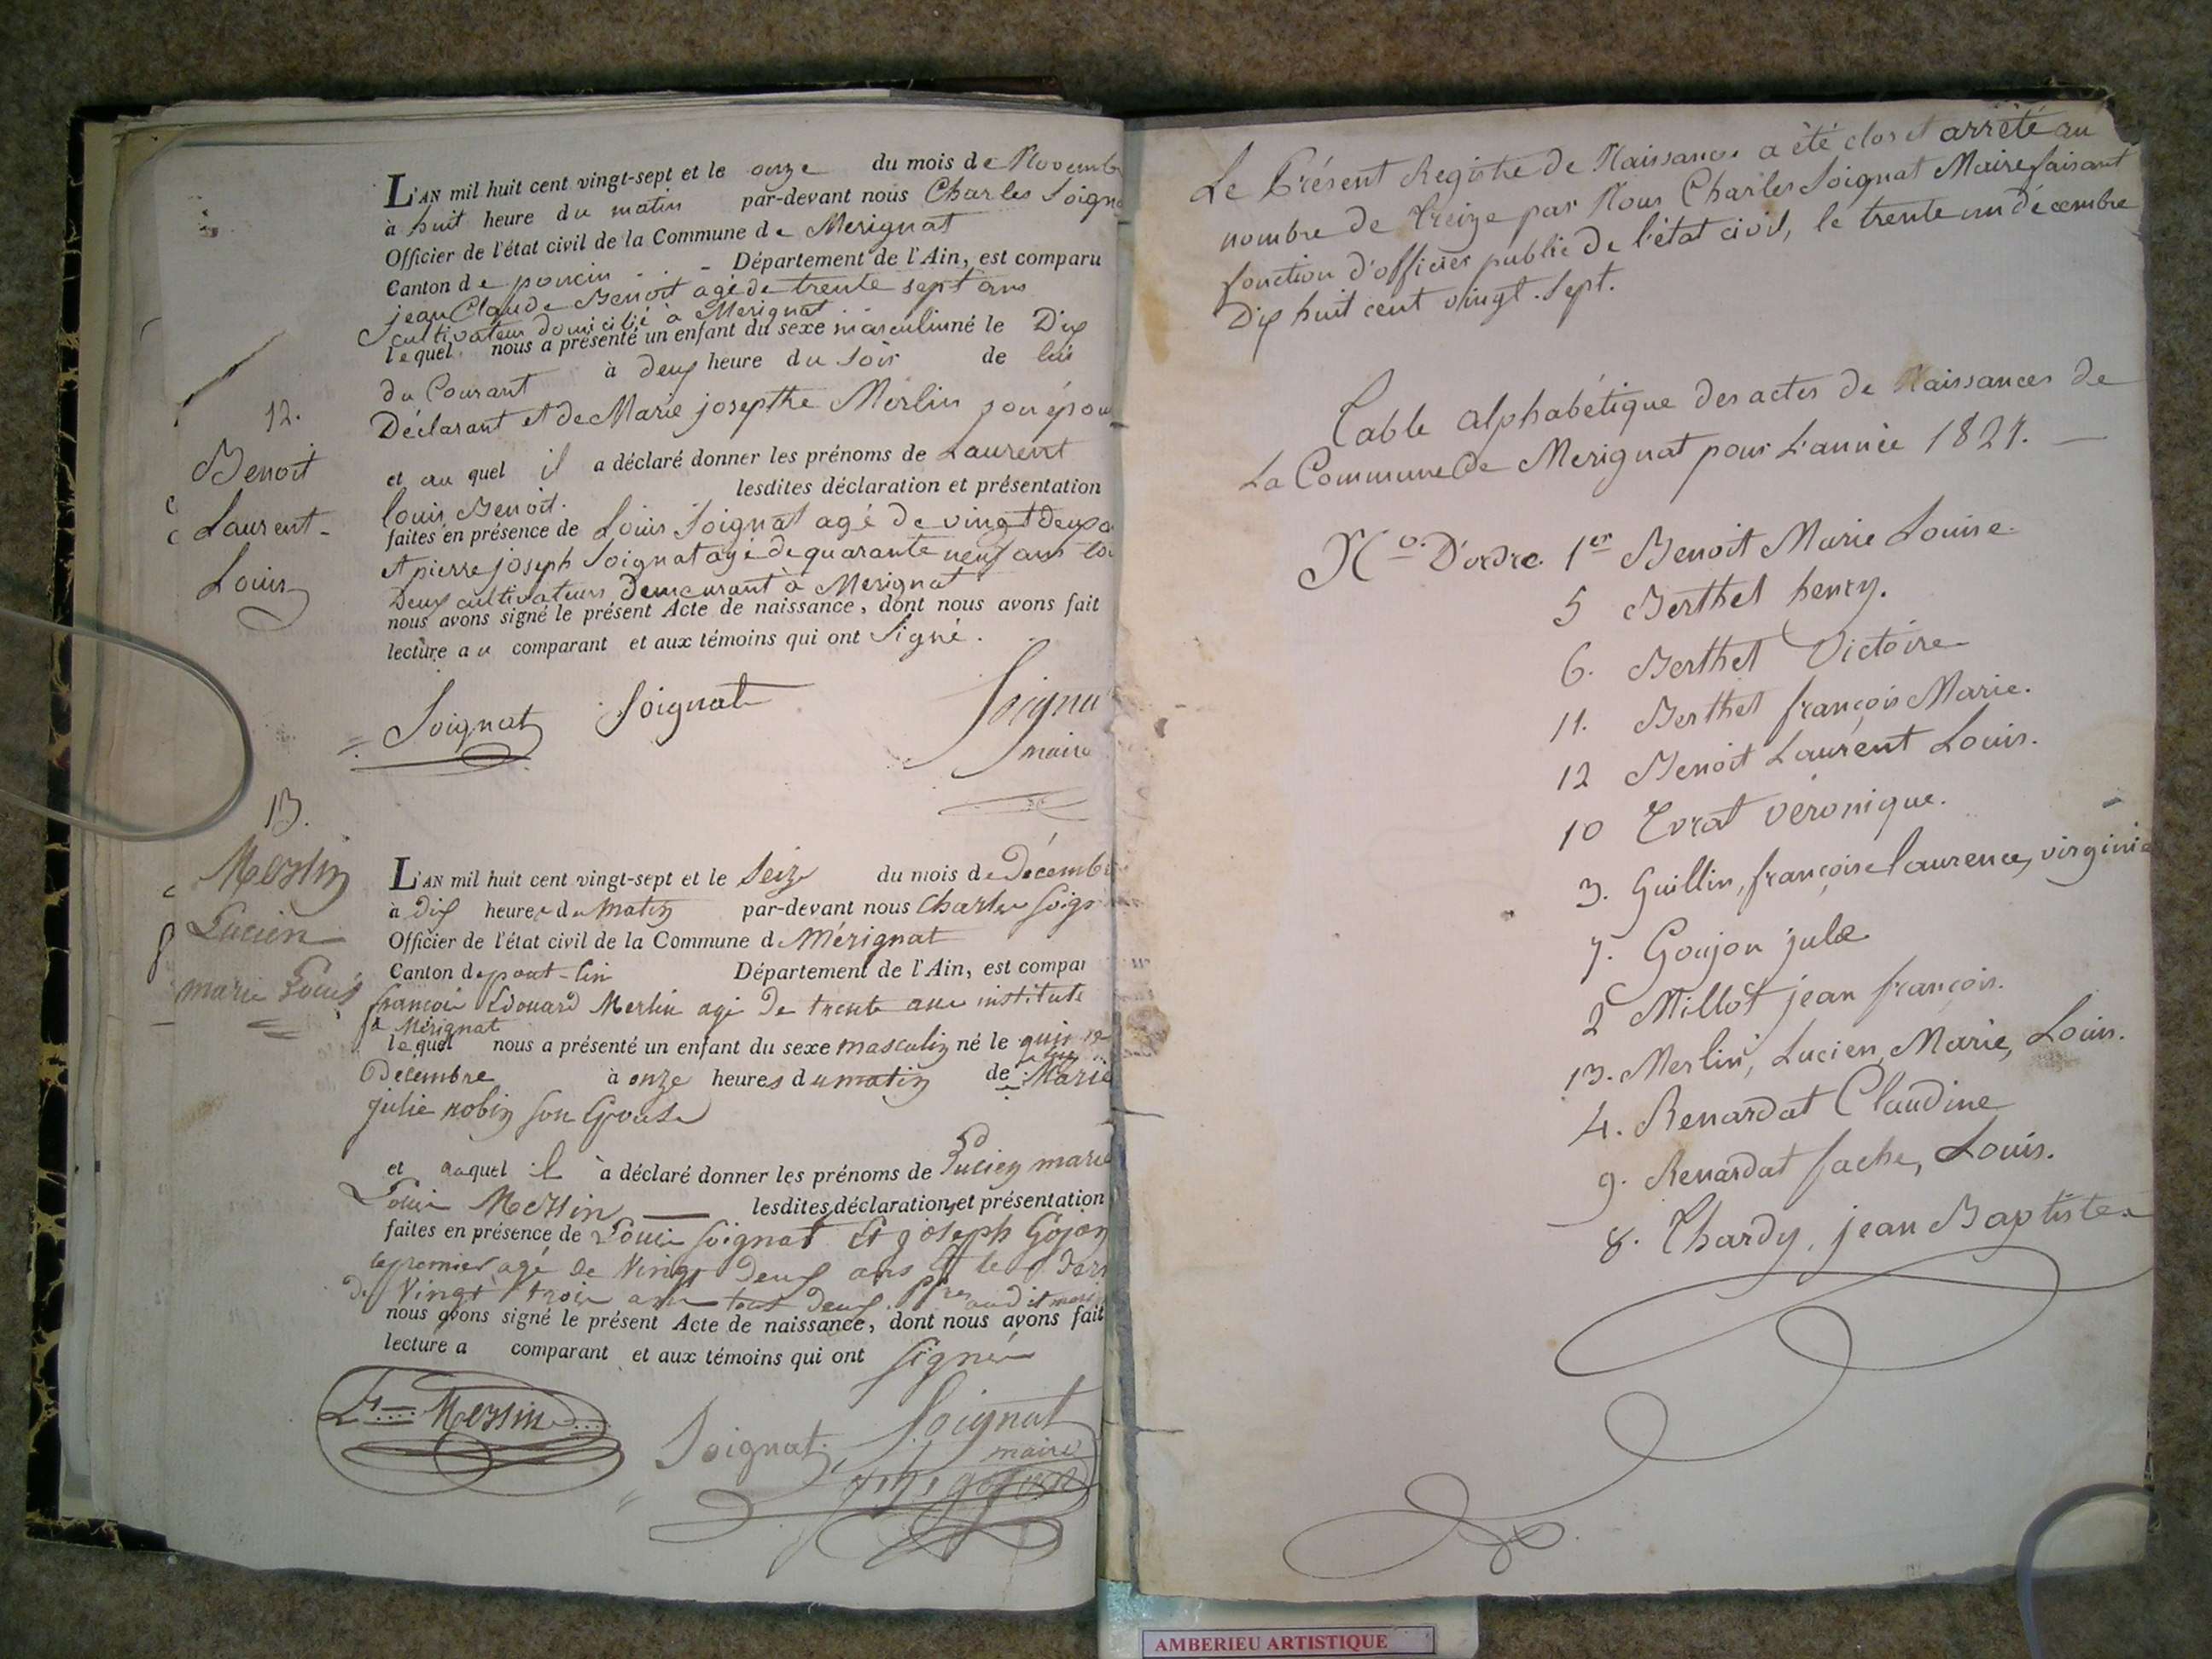 L'AN mil huit cent vingt-sept et le onze du mois de Novemb
à huit heure du matin par-devant nous Charles Soigna
Officier de l'état civil de la Commune de Merignat
Canton de poncin - Département de l'Ain, est comparu
jean Claude Benoit agé de trente sept ans
cultivateur domicilié à Merignat
lequel nous a présenté un enfant du sexe masculin né le Dix
du Courant à deux heure du Soir de lui
Déclarant et de Marie josepthe Merlin son épou
et au quel il a déclaré donner les prénoms de Laurent
louis Benoit. lesdites déclaration et présentation
faites en présence de Louis Soignat agé de vingt deux a
et pierre joseph Soignat agé de quarante neuf ans to
Deux cultivateurs demeurant à Merignat
nous avons signé le présent Acte de naissance, dont nous avons fait
lecture au comparant et aux témoins qui ont Signé.
12.
Benoit
Laurent-
Louis
Soignat Soignat Soigna
maire
13.
Merlin
Lucien
marie Louis
L'AN mil huit cent vingt-sept et le Seize du mois de Décemb
à dix heures du matin par-devant nous Charles Soign
Officier de l'état civil de la Commune de Mérignat
Canton de Département de l'Ain, est compar
françois Edouard Merlin agé de trente ans institut
à Mérignat
lequel nous a présenté un enfant du sexe masculin né le quinze
Décembre à onze heures du matin de Marie
julie robin son Epouse
et auquel il a déclaré donner les prénoms de Lucien marie
Louis Merlin lesdites déclaration et présentation
faites en présence de Louis Soignat Et joseph Gojon
le premier agé de Vingt Deux ans Et le Der
De Vingt trois ans tous Deux audit
nous avons signé le présent Acte de naissance, dont nous avons fait
lecture a comparant et aux témoins qui ont Signé
Merlin Soignat Soignat
maire
gojon
Le Présent Registre de Naissances a été clos et arrêté au
nombre de Treize par Nous Charles Soignat Maire faisant
fonction d'officier public de l'état civil, le trente un décembre
Dix huit cent vingt-sept.
Table alphabétique des actes de Naissances de
La Commune de Merignat pour L'année 1827.
No. D'ordre. 1er Benoit Marie Louise
5 Berthet henry.
6. Berthet Victoire
11. Berthet françois Marie.
12 Benoit Laurent Louis.
10 Evrat veronique.
3. Guillin, françoise laurence, virginie
7. Goujon jule
2 Millot jean françois.
13. Merlin, Lucien, Marie, Louis.
4. Renardat Claudine
9. Renardat fache, Louis.
8. Chardy, jean Baptiste.
AMBERIEU ARTISTIQUE